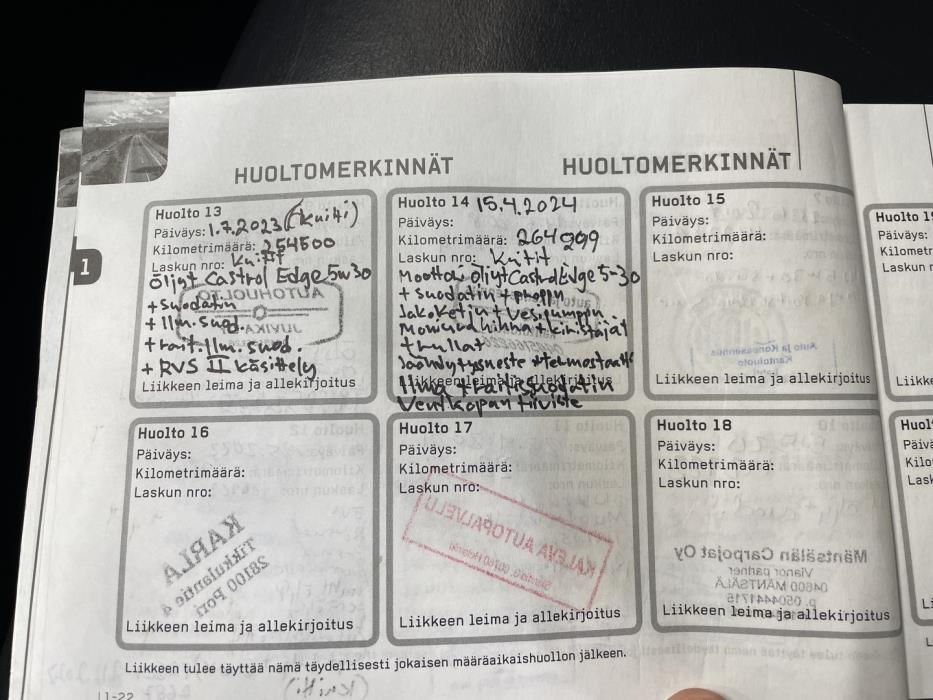 HUOLTOMERKINNÄT
HUOLTOMERKINNÄT
1
Huolto 13
Päiväys: 1.7.2023 (kuitti)
Kilometrimäärä: 254500
Laskun nro: kuitti
Öljyt Castrol Edge 5w30
+ suodatin
+ Ilm. suod.
+ rait. ilm. suod.
+ RVS II käsittely
Liikkeen leima ja allekirjoitus
Huolto 14 15.4.2024
Päiväys:
Kilometrimäärä: 264999
Laskun nro: kuitit
Moottori öljyt Castrol Edge 5-30
+ suodatin + proppu
Jakoketju + vesipumppu
Moniurahihna + kiristäjät
+ rullat
Jäähdytysneste + termostaatti
Liikkeen leima ja allekirjoitus
Ilma + raitisuodatin
Ventkopan tiiviste
Huolto 15
Päiväys:
Kilometrimäärä:
Laskun nro:
Liikkeen leima ja allekirjoitus
Huolto 16
Päiväys:
Kilometrimäärä:
Laskun nro:
KARLA
Tikkulantie 4
28100 Pori
Liikkeen leima ja allekirjoitus
Huolto 17
Päiväys:
Kilometrimäärä:
Laskun nro:
KALEVA AUTOPALVELU
Liikkeen leima ja allekirjoitus
Huolto 18
Päiväys:
Kilometrimäärä:
Laskun nro:
Mäntsälän Carpojat Oy
Vianor partner
04600 MÄNTSÄLÄ
Liikkeen leima ja allekirjoitus
Liikkeen tulee täyttää nämä täydellisesti jokaisen määräaikaishuollon jälkeen.
11-22